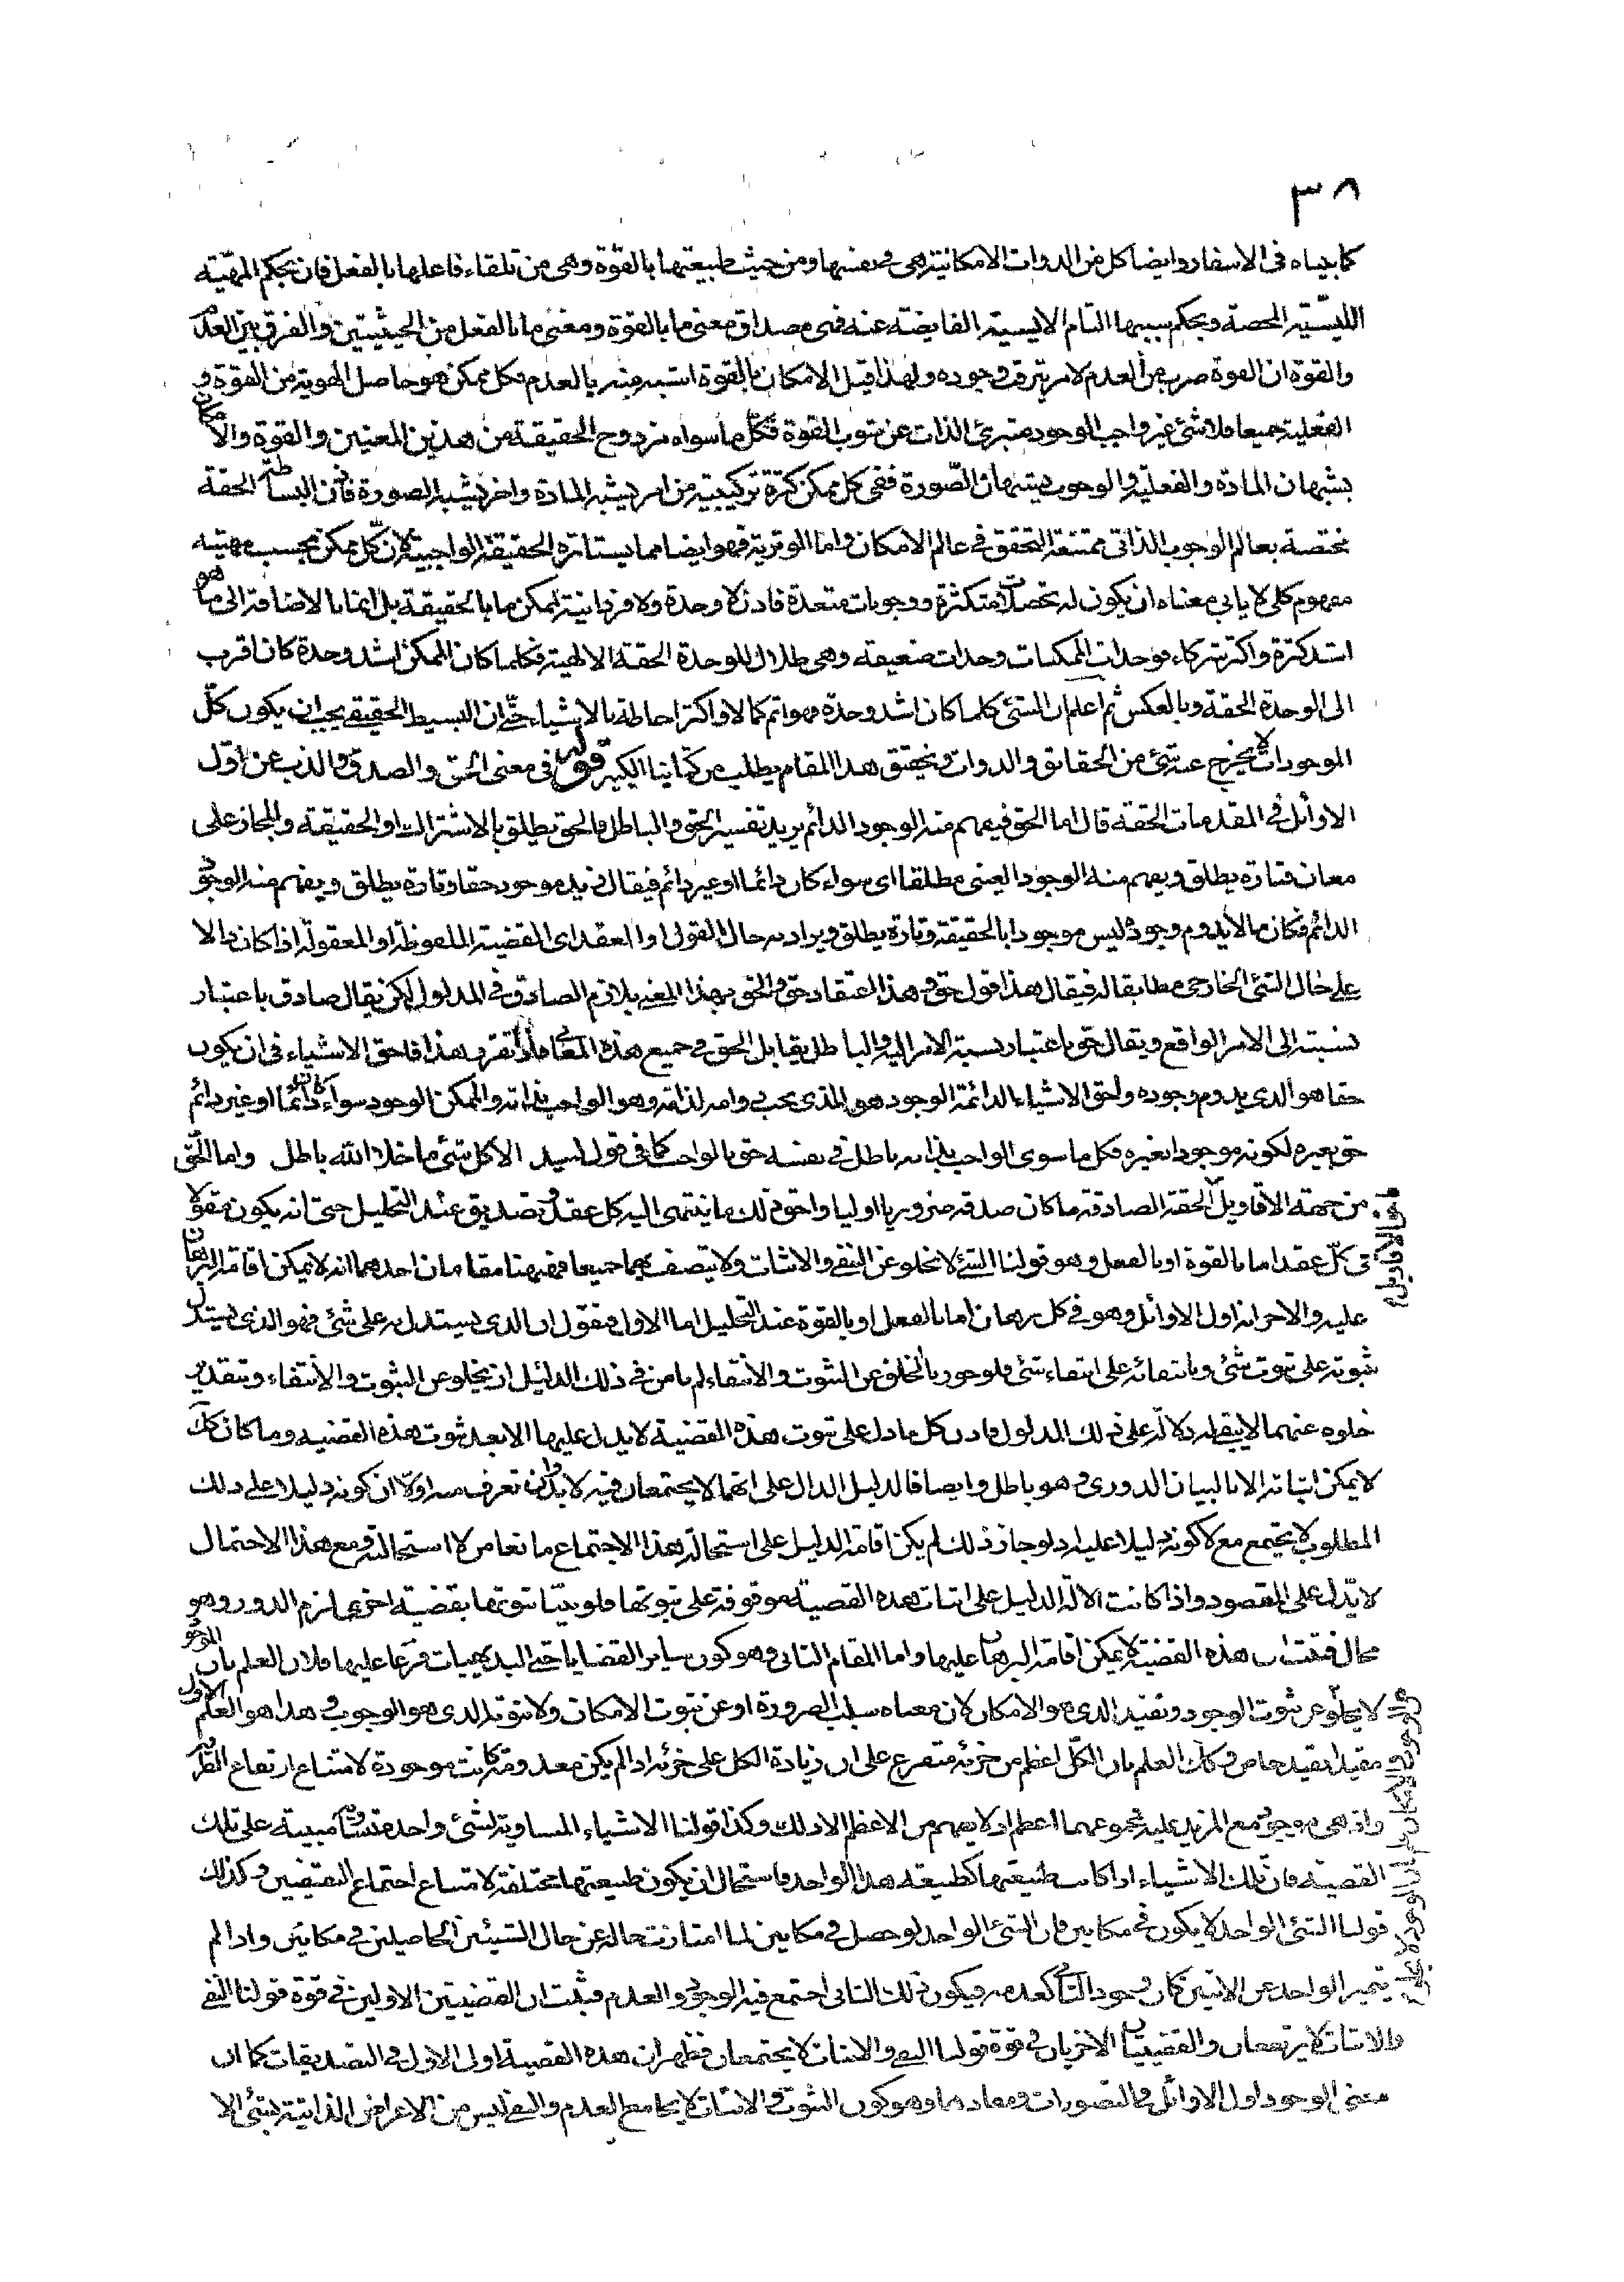 ٣٨
كما بيناه فى الاسفار وايضا كل من الذوات الامكانية هى فى نفسها ومن حيث طبيعتها بالقوة وهى من تلقاء فاعلها بالفعل فان بحكم المهيّة
الليسيّة المحضة وبحكم سببها التام الايسية الفايضة عنه فهى مصداق معنى ما بالقوة ومعنى ما بالفعل من الحيثيتين والفرق بين العدم
والقوة ان القوة ضرب من العدم لامر يترقب وجوده ولهذا قيل الامكان بالقوة اشبه منه بالعدم فكل ممكن هو حاصل الهوية من القوة و
الفعلية جميعا فلا شئ غير واجب الوجود متبرئ الذات عن شوب القوة فكل ما سواه مزدوج الحقيقة من هذين المعنيين والقوة والامكان
يشبهان المادة والفعلية والوجوب يشبهان الصّورة ففى كل ممكن كثرة تركيبية من امر يشبه المادة واخر يشبه الصورة فاذن البساطة الحقة
مختصة بعالم الوجوب الذاتى ممتنعة التحقق فى عالم الامكان واما الوترية فهو ايضا مما يستاثره الحقيقة الواجبية لان كل ممكن بحسب مهيته
مفهوم كلى لا يابى معناه ان يكون له تحصلات متكثرة ووجوبات متعددة فاذن لا وحدة ولا فردانية لممكن ما بالحقيقة بل انما بالاضافة الى ما هو
اشد كثرة واكثر شركاء فوحدات الممكنات وحدات ضعيفة وهى ظلال للوحدة الحقة الالهية فكلما كان الممكن اشد وحدة كان اقرب
الى الوحدة الحقة وبالعكس ثم اعلم ان الشئ كلما كان اشد وحدة فهو اتم كمالا واكثر احاطة بالاشياء حتى ان البسيط الحقيقى يجب ان يكون كلّ
الموجودات لا يخرج عنه شئ من الحقائق والذوات وتحقيق هذا المقام يطلب من كتابنا الكبير قوله فى معنى الحق والصدق والذب عن اوّل
الاوائل فى المقدمات الحقة قال اما الحق فيفهم منه الوجود الدائم يريد تفسير الحق والباطل فالحق يطلق بالاشتراك او الحقيقة والمجاز على
معان فتارة يطلق ويفهم منه الوجود العينى مطلقا اى سواء كان دائما او غير دائم فيقال زيد موجود حقا وتارة يطلق ويفهم منه الوجود
الدائم فكان ما لا يدوم وجوده ليس موجودا بالحقيقة وتارة يطلق ويراد به حال القول او العقد اى القضية الملفوظة او المعقولة اذا كان دالا
على حال الشئ الخارجى مطابقا له فيقال هذا قول حق وهذا اعتقاد حق والحق بهذا المعنى يلازم الصادق فى المدلول لكن يقال صادق باعتبار
نسبته الى الامر الواقع ويقال حق باعتبار نسبة الامر اليه والباطل يقابل الحق فى جميع هذه المعانى فاذا تقرر هذا فاحق الاشياء فى ان يكون
حقا هو الذى يدوم وجوده واحق الاشياء الدائمة الوجود هو الذى يجب دوامه لذاته وهو الواجب بذاته والممكن الوجود سواء كان دائما او غير دائم
حق بغيره لكونه موجودا بغيره فكل ما سوى الواجب بذاته باطل فى نفسه حق بالواجب كما فى قول لبيد الا كل شئ ما خلا الله باطل واما الحق
من جهة الاقاويل الحقة الصادقة ما كان صدقه ضروريا اوليا واحق ذلك ما ينتهى اليه كل عقد وتصديق عند التحليل حتى انه يكون مقولا
فى كلّ عقد اما بالقوة او بالفعل وهو قولنا الشئ لا يخلو عن النفى والاثبات ولا يتصف بهما جميعا فههنا مقامان احدهما انه لا يمكن اقامة البرهان
عليه والاخر انه اول الاوائل وهو فى كل برهان اما بالفعل او بالقوة عند التحليل اما الاول فنقول ان الذى يستدل به على شئ فهو الذى يستدل
ثبوته على ثبوت شئ وبانتفائه على انتفاء شئ فلو جوزنا الخلو عن الثبوت والانتفاء لم يامن فى ذلك الدليل ان يخلو عن الثبوت والانتفاء وبتقدير
خلوه عنهما لا يبقى له دلالة على ذلك المدلول فاذن كل ما دل على ثبوت هذه القضية لا يدل عليها الا بعد ثبوت هذه القضية وما كان كك
لا يمكن اثباته الا بالبيان الدورى وهو باطل وايضا فالدليل الدال على انهما لا يجتمعان فيه لا بد وان تعرف منه اولا ان كونه دليلا على ذلك
المطلوب لا يجتمع مع لا كونه دليلا عليه اذ لو جاز ذلك لم يكن اقامة الدليل على استحالة هذا الاجتماع مانعا من لا استحالته ومع هذا الاحتمال
لا يدل على المقصود واذا كانت دلالة الدليل على اثبات هذه القضية موقوفة على ثبوتها فلو بيّنا ثبوتها بقضية اخرى لزم الدور وهو
محال فثبت ان هذه القضية لا يمكن اقامة البرهان عليها واما المقام الثانى وهو كون ساير القضايا حتى البديهيات فرعا عليها فلان العلم بان الموجود
لا يخلو عن ثبوت الوجود ونفيه الذى هو الامكان لان معناه سلب الضرورة او عن ثبوت الامكان ولا ثبوته الذى هو الوجوب وهذا هو العلم الاول
مقيدا بقيد خاص وكك العلم بان الكلّ اعظم من جزئه متفرع على ان زيادة الكل على جزئه اذ لم يكن معدومة كانت موجودة لامتناع ارتفاع الطرفين
واذ هى موجودة مع المزيد عليه فمجموعهما اعظم اذ لا يفهم من الاعظم الا ذلك وكذا قولنا الاشياء المساوية لشئ واحد متساوية مبنية على تلك
القضية فان تلك الاشياء اذا كانت طبيعتها كطبيعة هذا الواحد فاستحال ان يكون طبيعتها مختلفة لامتناع اجتماع النقيضين وكذلك
قولنا الشئ الواحد لا يكون فى مكانين فان الشئ الواحد لو حصل فى مكانين لما امتازت حاله عن حال الشيئين الحاصلين فى مكانين واذا لم
يتميز الواحد عن الاثنين كان وجود الثانى كعدمه فيكون ذلك الثانى اجتمع فيه الوجود والعدم فثبت ان القضيتين الاوليين فى قوة قولنا النفى
والاثبات لا يرتفعان والقضيتان الاخريان فى قوة قولنا النفى والاثبات لا يجتمعان فظهر ان هذه القضية اول الاول فى التصديقات كما ان
معنى الوجود اول الاوائل فى التصورات ومفادها وهو كون الثبوت والاثبات لا يجامع العدم والنفى ليس من الاعراض الذاتية لشئ الا